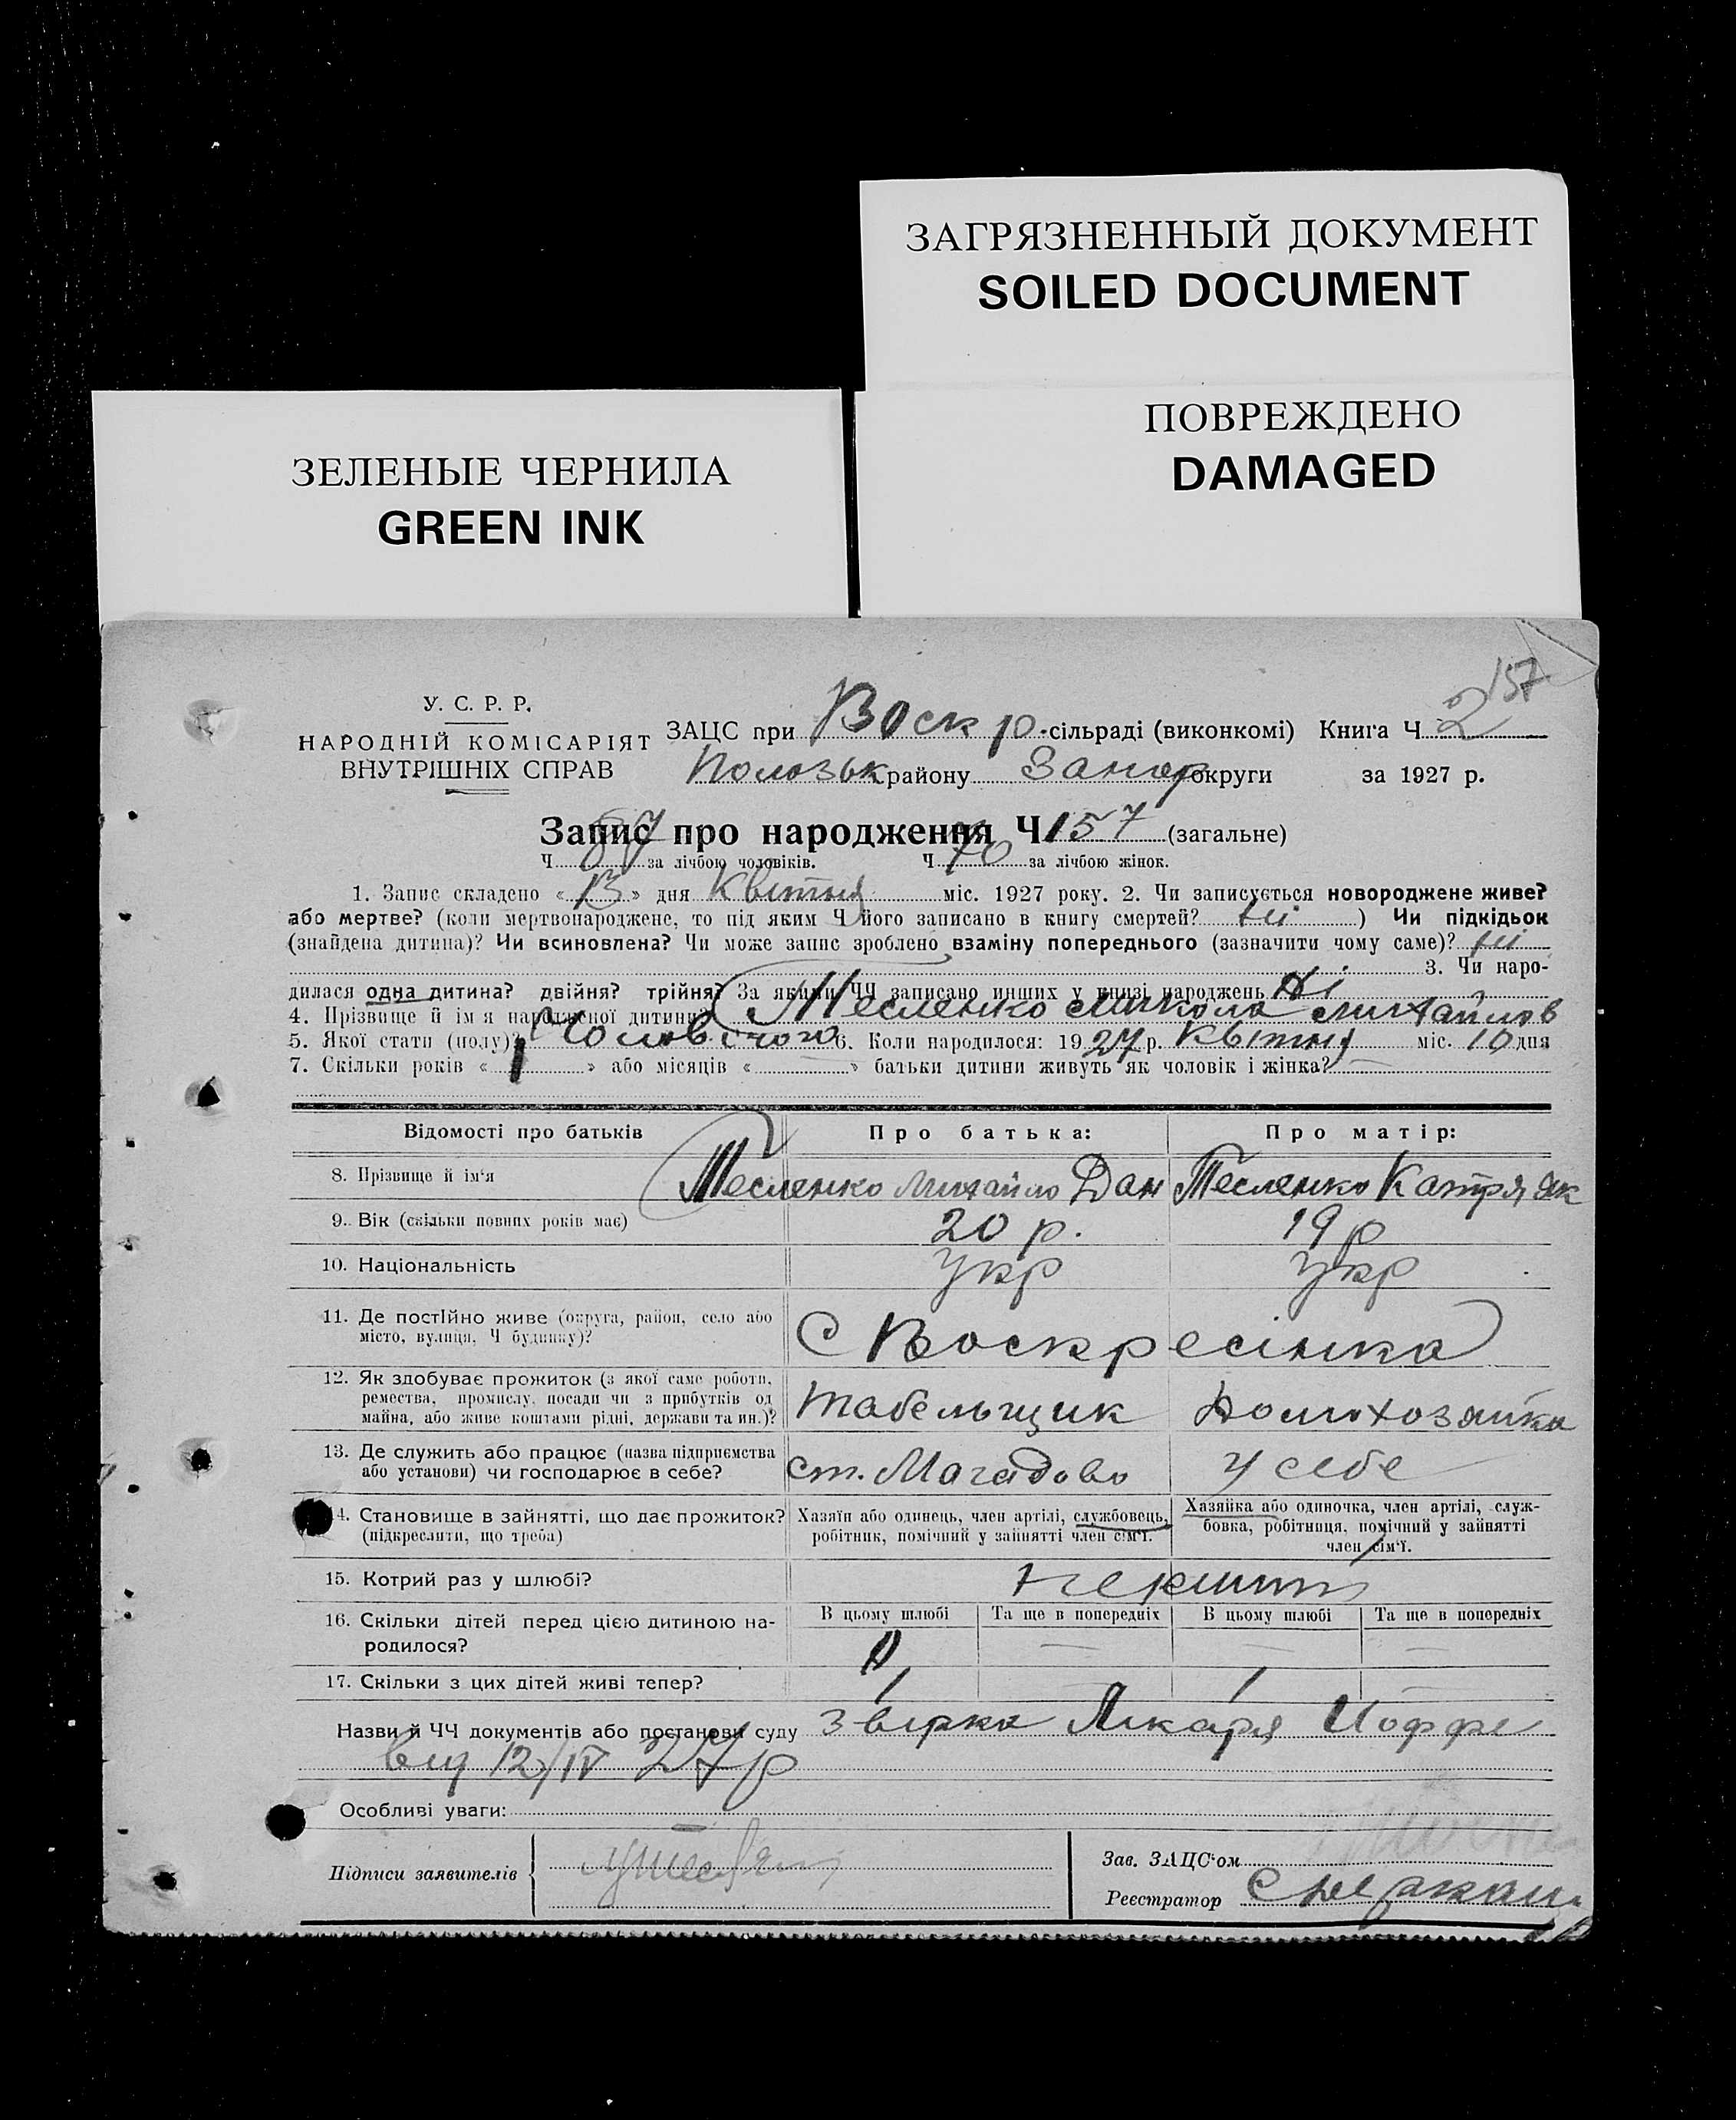 ЗАГРЯЗНЕННЫЙ ДОКУМЕНТ
SOILED DOCUMENT
ПОВРЕЖДЕНО
DAMAGED
ЗЕЛЕНЫЕ ЧЕРНИЛА
GREEN INK
157
У. С. Р. Р.
НАРОДНІЙ КОМІСАРІЯТ
ВНУТРІШНІХ СПРАВ
ЗАЦС при Воскр. сільраді (виконкомі) Книга Ч 2
Полозьк району Запор округи за 1927 р.
Запис про народження Ч 157 (загальне)
Ч 87 за лічбою чоловіків. Ч 70 за лічбою жінок.
1. Запис складено « 13 » дня Квітня міс. 1927 року. 2. Чи записується новороджене живе?
або мертве? (коли мертвонароджене, то під яким Ч його записано в книгу смертей? ні ) Чи підкідьок
(знайдена дитина)? Чи всиновлена? Чи може запис зроблено взаміну попереднього (зазначити чому саме)? ні
3. Чи наро-
дилася одна дитина? двійня? трійня? За якими ЧЧ записано инших у книзі народжень Ні
4. Прізвище й ім'я народженої дитини? Тесленко Микола Михайлов
5. Якої статі (полу)? Чоловічого 6. Коли народилося: 1927 р. Квітня міс. 10 дня
7. Скільки років « 1 » або місяців « — » батьки дитини живуть як чоловік і жінка? —
Відомості про батьків Про батька: Про матір:
8. Прізвище й ім'я Тесленко Михайло Дан Тесленко Катря Як
9. Вік (скільки повних років має) 20 р. 19 р
10. Національність Укр Укр
11. Де постійно живе (округа, район, село або
місто, вулиця, Ч будинку)? С Воскресінка
12. Як здобуває прожиток (з якої саме роботи,
ремества, промислу, посади чи з прибутків од
майна, або живе коштами рідні, держави та ин.)? Табельщик Домохозяйка
13. Де служить або працює (назва підприємства
або установи) чи господарює в себе? ст. Магедово у себе
14. Становище в зайнятті, що дає прожиток?
(підкреслити, що треба)
Хазяїн або одинець, член артілі, службовець,
робітник, помічний у зайнятті член сім'ї.
Хазяйка або одиночка, член артілі, служ-
бовка, робітниця, помічний у зайнятті
член сім'ї.
15. Котрий раз у шлюбі? перший
16. Скільки дітей перед цією дитиною на-
родилося?
В цьому шлюбі Та ще в попередніх В цьому шлюбі Та ще в попередніх
17. Скільки з цих дітей живі тепер?
Назви й ЧЧ документів або постанови суду звірка Лікаря Иоффе
від 12/IV 27р
Особливі уваги:
Підписи заявителів
Зав. ЗАЦС'ом
Реєстратор